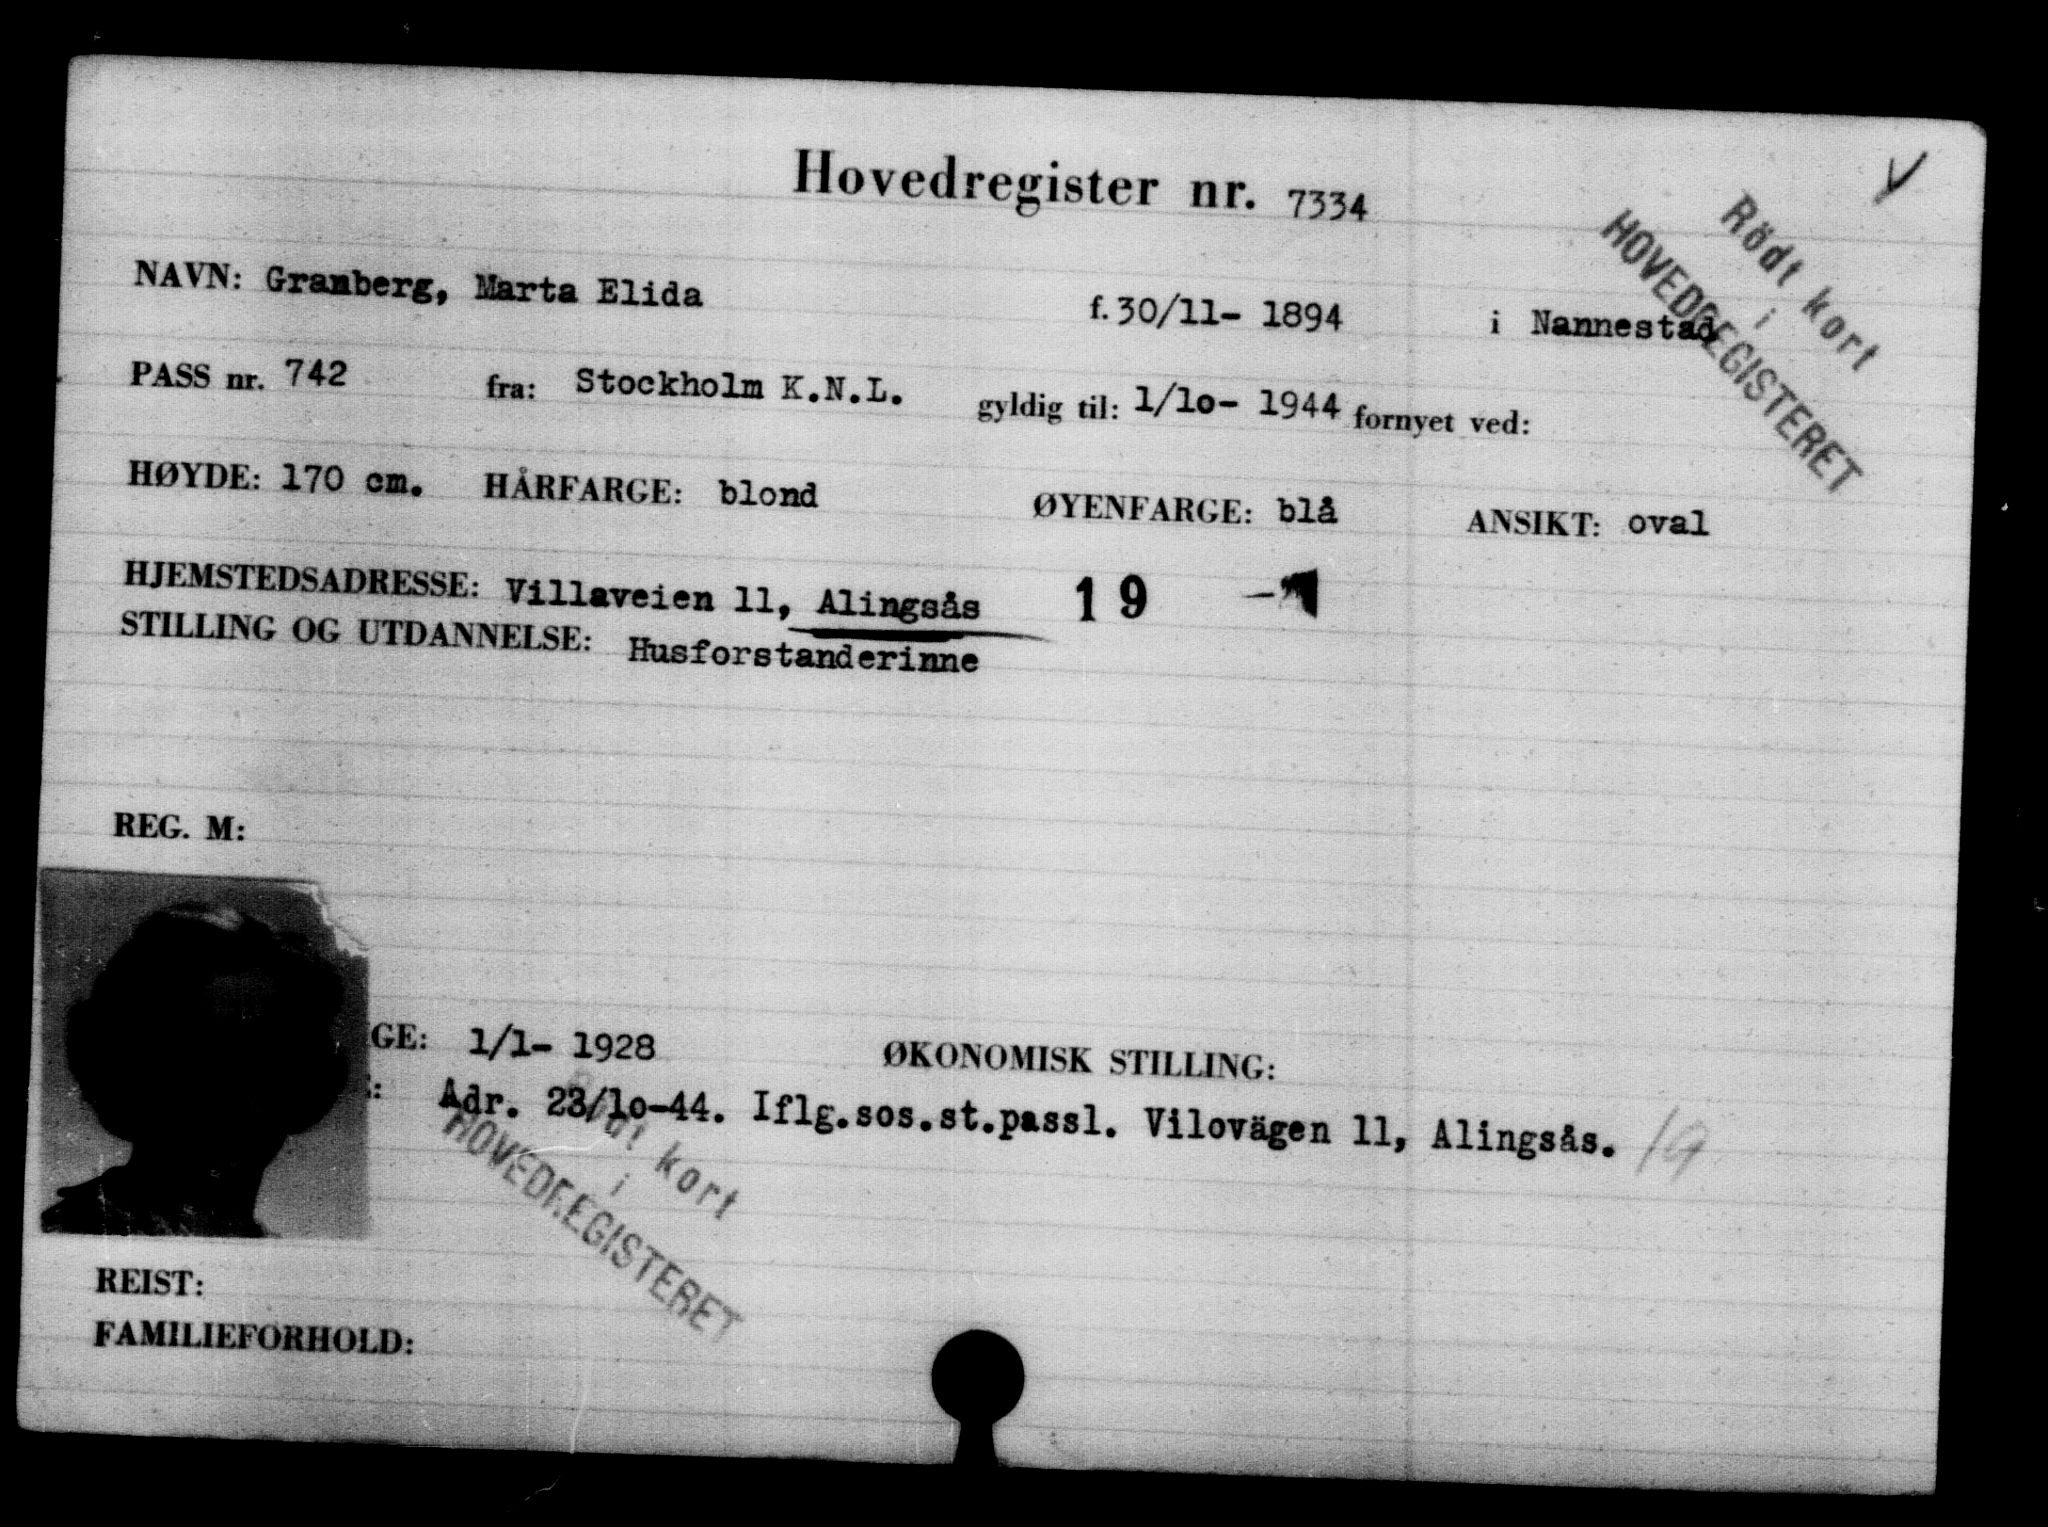 Hovedregister nr. 7334
Rödt kort
i
HOVEDREGISTERET
NAVN: Granberg, Marta Elida f. 30/11- 1894 i Nannestad
PASS nr. 742 fra: Stockholm K.N.L. gyldig til: 1/10- 1944 fornyet ved:
HØYDE: 170 cm. HÅRFARGE: blond ØYENFARGE: blå ANSIKT: oval
HJEMSTEDSADRESSE: Villaveien 11, Alingsås 19
STILLING OG UTDANNELSE: Husforstanderinne
REG. M:
GE: 1/1- 1928 ØKONOMISK STILLING:
E: Adr. 23/10-44. Iflg.sos.st.passl. Vilovägen 11, Alingsås. 19
Rödt kort
i
HOVEDREGISTERET
REIST:
FAMILIEFORHOLD: